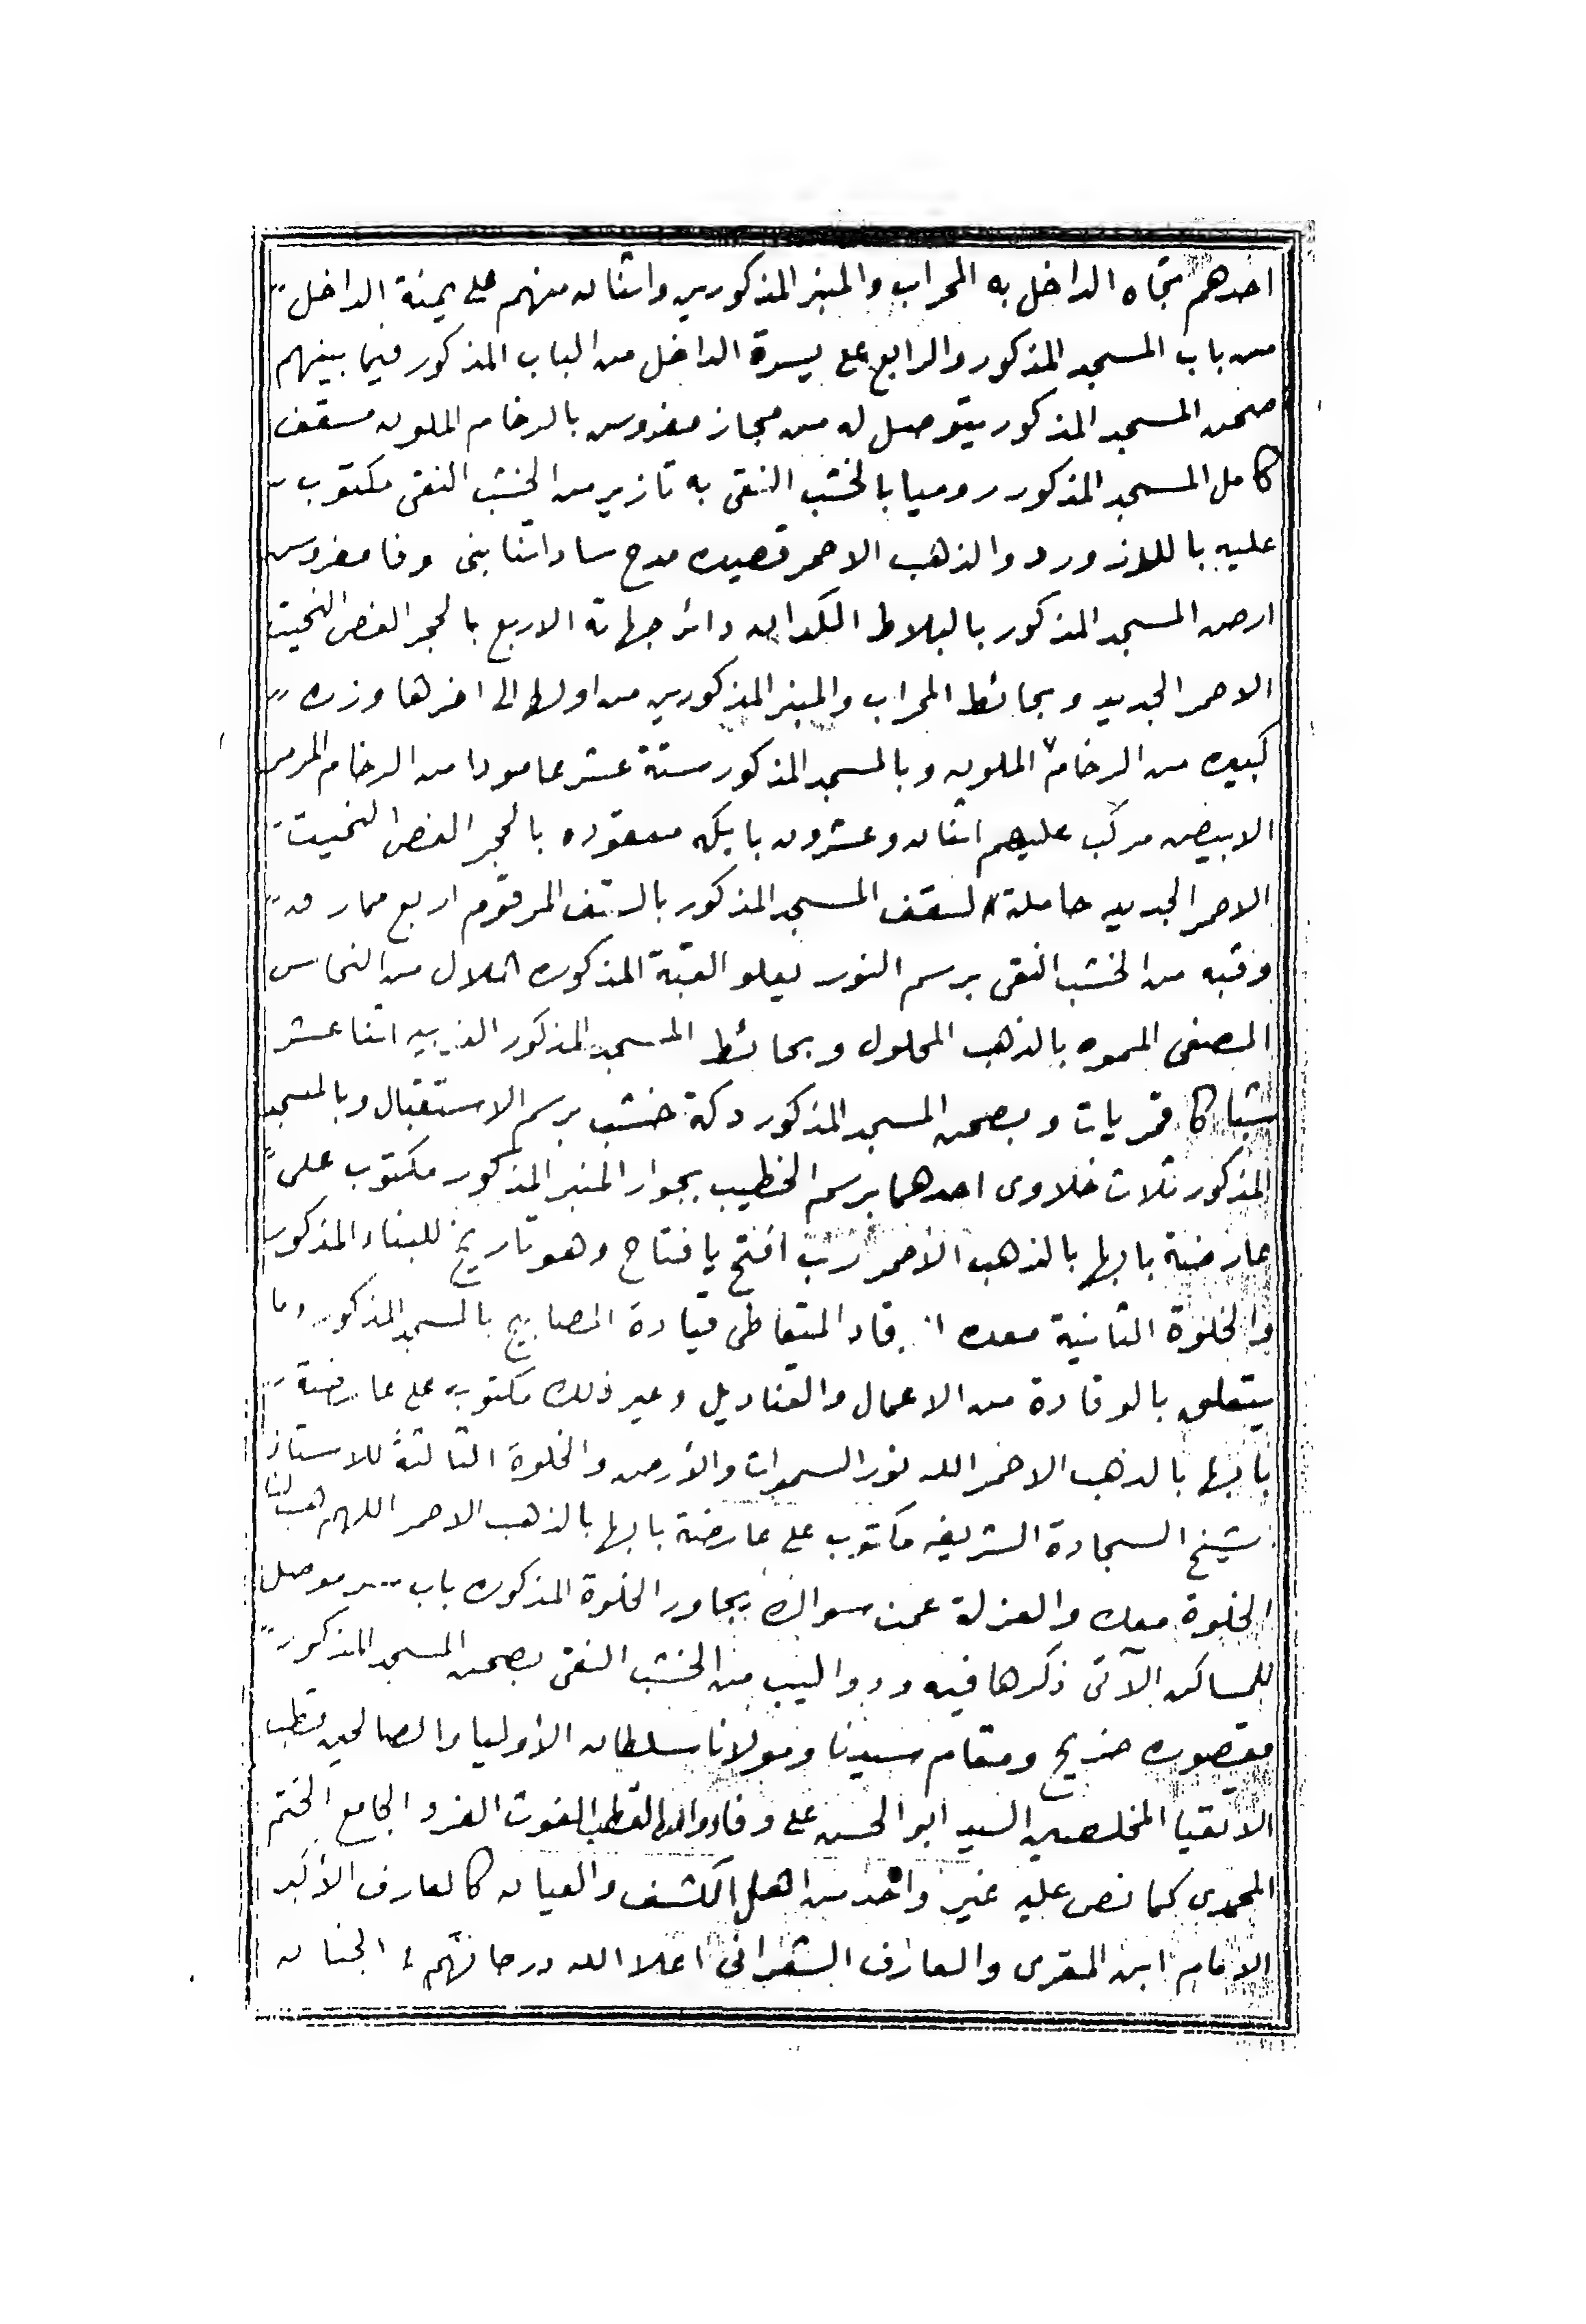 احدهم تجاه الداخل به المحراب والمنبر المذكورين واثنان منهم على يمنة الداخل
من باب المسجد المذكور والرابع على يسرة الداخل من الباب المذكور فيما بينهم
صحن المسجد المذكور يتوصل له من مجاز مفروس بالرخام الملون مسقف
كامل المسجد المذكور روميا بالخشب النقى به تازير من الخشب النقى مكتوب
عليه باللازورد والذهب الاحمر قصيده مدح ساداتنا بنى وفا مفروس
ارض المسجد المذكور بالبلاط الكدان دائر جهاته الاربع بالحجر الفص النحيت
الاحمر الجديد وبحائط المحراب والمنبر المذكورين من اولها الى اخرها وزره
كبيره من الرخام الملون وبالمسجد المذكور ستة عشر عامودا من الرخام المرمر
الابيض مركب عليهم اثنان وعشرون بايكه معقوده بالحجر الفص النحيت
الاحمر الجديد حاملة لسقف المسجد المذكور بالسقف المرقوم اربع ممارق
وقبه من الخشب النقى برسم النور يعلو القبة المذكوره هلال من النحاس
المصفى المموه بالذهب المحلول وبحائط المسجد المذكور الغربيه اثنا عشر
شباكا قمريات وبصحن المسجد المذكور دكة خشب برسم الاستقبال وبالمسجد
المذكور ثلاث خلاوى احدهما برسم الخطيب بجوار المنبر المذكور مكتوب على
عارضة بابها بالذهب الاحمر رب افتح يا فتاح وهو تاريخ للبناء المذكور
والخلوة الثانية معده وقاد المتعاطى قيادة المصابيح بالمسجد المذكور وما
يتعلق بالوقادة من الاعمال والقناديل وغير ذلك مكتوب على عارضة
بابها بالذهب الاحمر الله نور السموات والأرض والخلوة الثالثة للاستاذ
شيخ السجادة الشريفه مكتوب على عارضة بابها بالذهب الاحمر اللهم هب لنا
الخلوة معك والعزلة عمن سواك يجاور الخلوة المذكوره باب سر موصل
للمساكن الآتى ذكرها فيه ودواليب من الخشب النقى بصحن المسجد المذكور
مقصوره ضريح ومقام سيدنا ومولانا سلطان الأوليا والصالحين قطب
الاتقيا المخلصين السيد ابو الحسن على وفا القطب الغوث الفرد الجامع الختم
المحمدى كما نص عليه غير واحد من اهل الكشف والعيان كالعارف الأكبر
الامام ابن المقرى والعارف الشعرانى اعلا الله درجاتهم الجنان